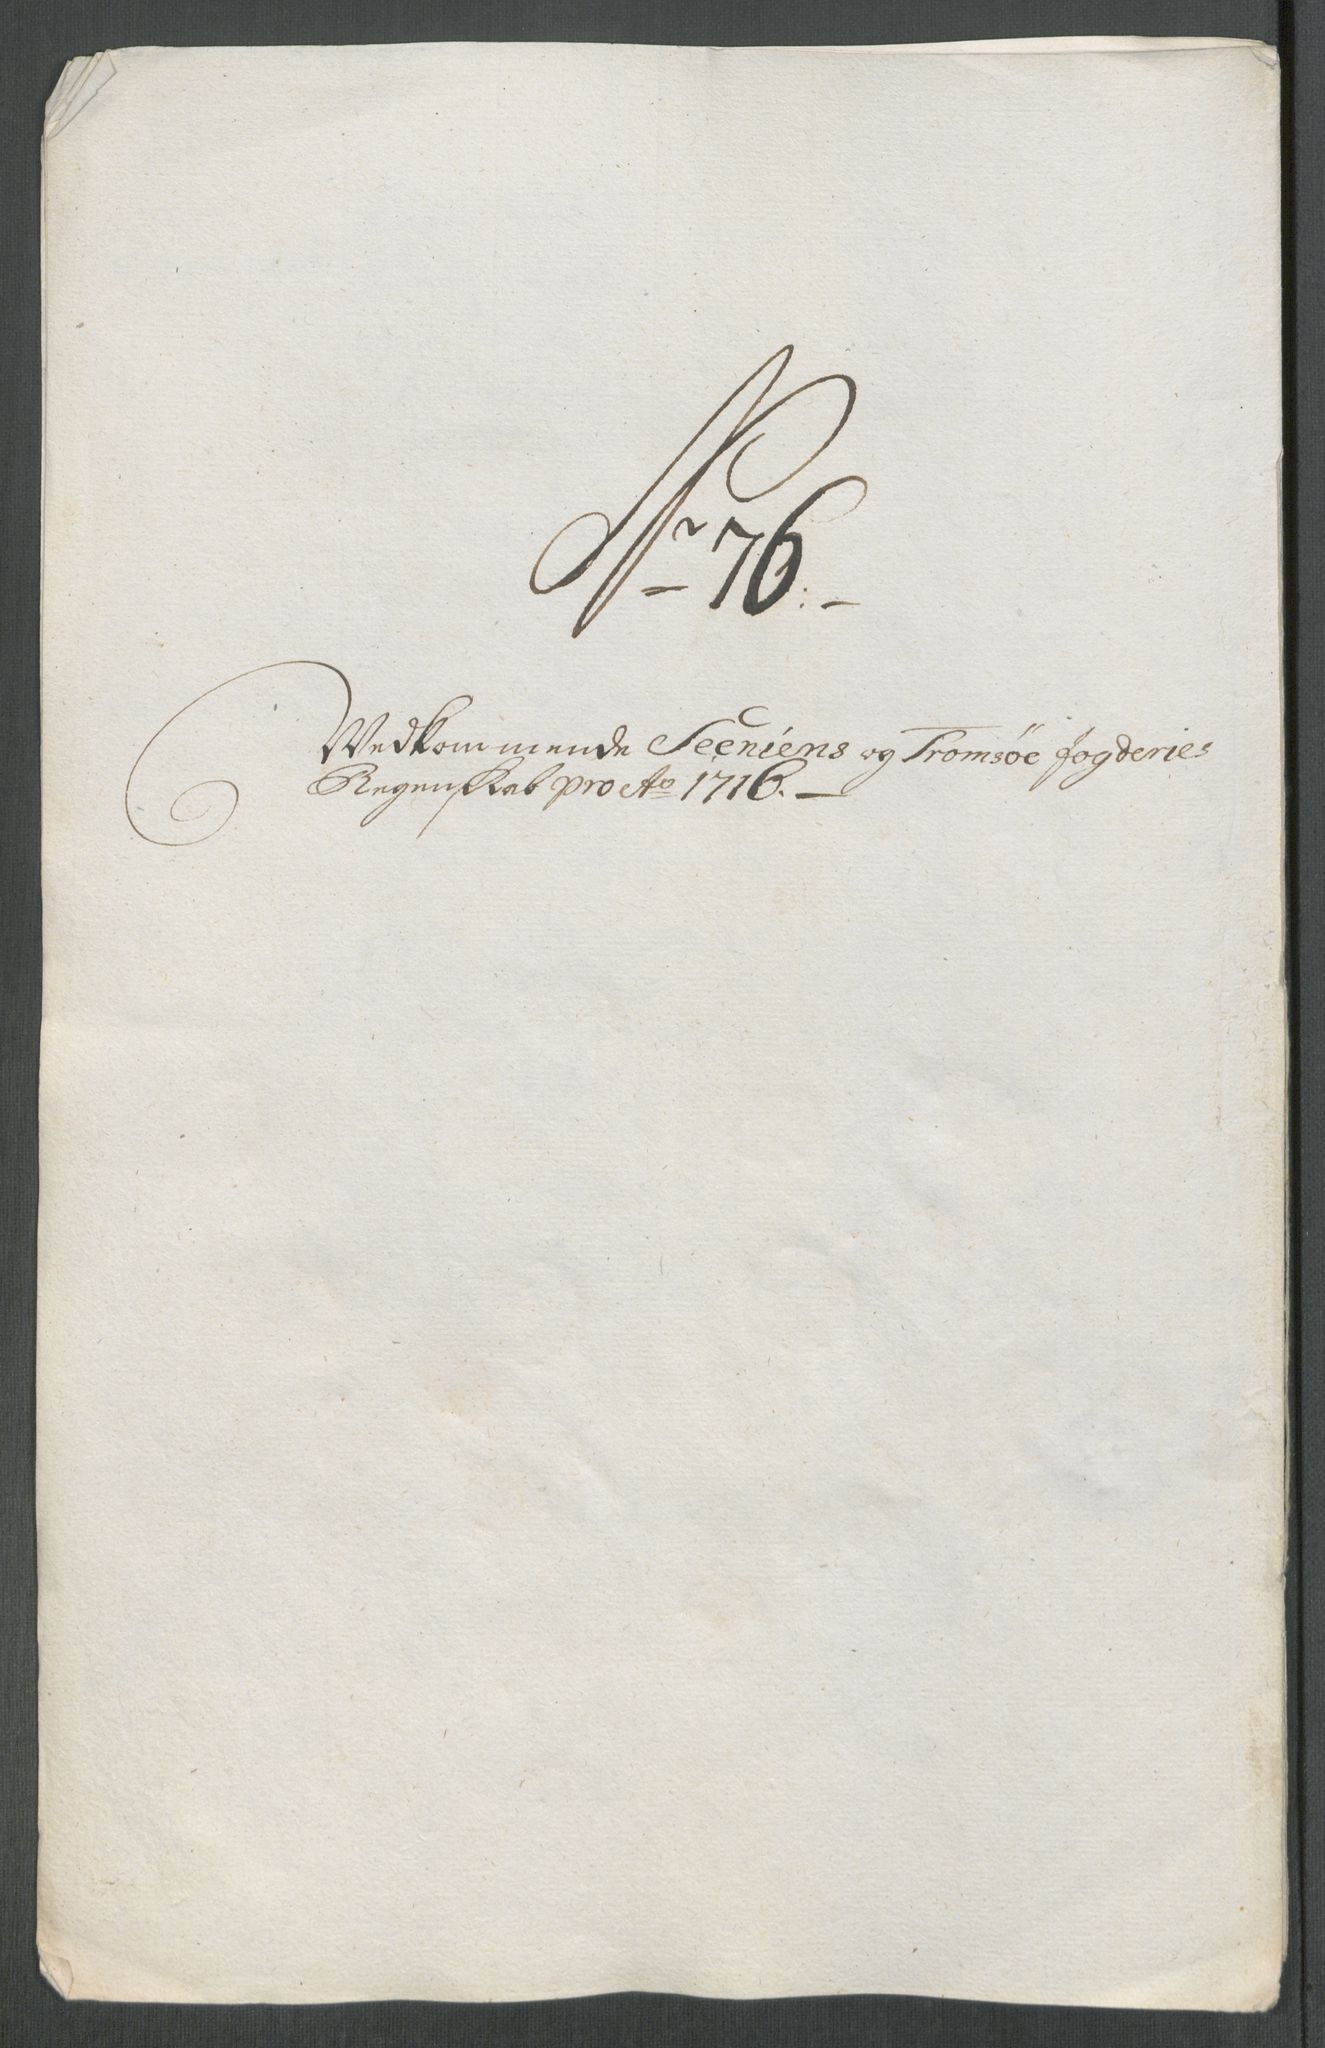 Nr 76.
Vedkommende Seeniens og Tromsøe fogderies
Regenskab pro Ao 1716.